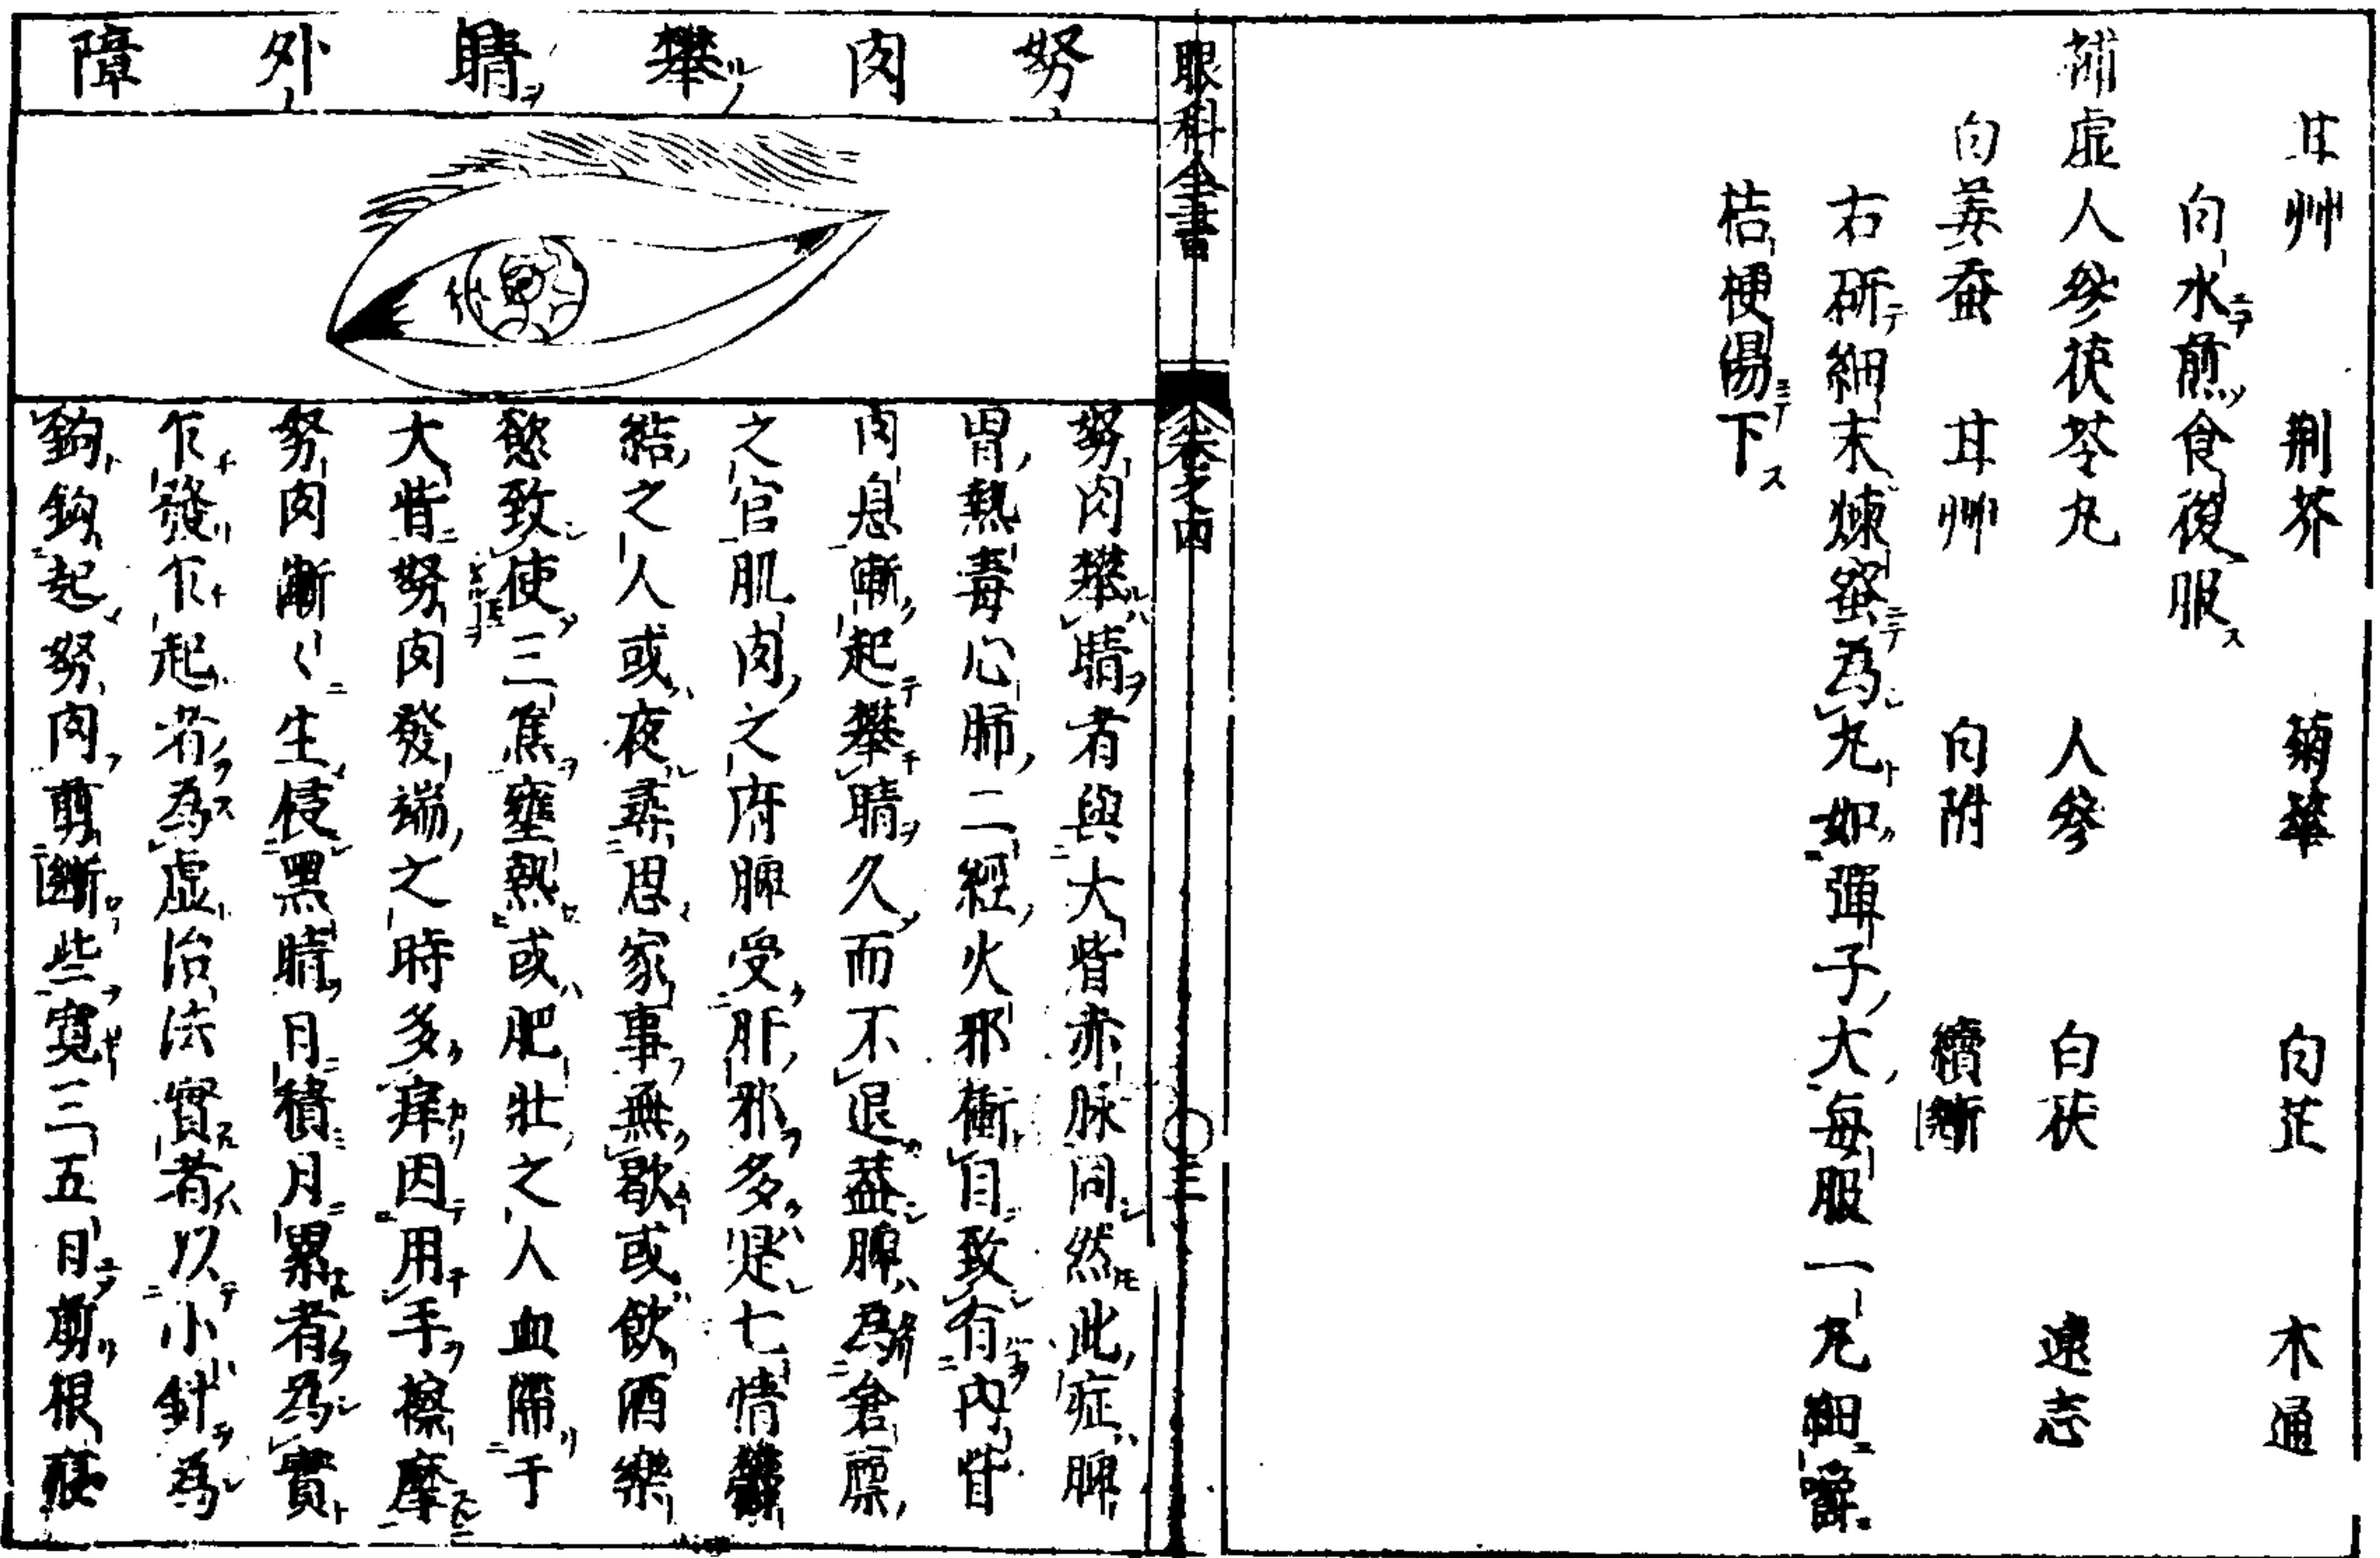 甘艸 荆芥 菊華 白芷 木通
白水煎食後服
補虚人參茯苓丸 人參 白茯 遠志
白姜蚕 甘艸 白附 續斷
右研細末煉蜜為丸如彈子大每服一丸細嚼
桔梗湯下
眼科全書 卷之四 〇三
努肉攀睛外障
努肉攀睛者與大眥赤脉同然此症脾
胃熱毒心肺二經火邪衝目致有內眥
肉息漸起攀睛久而不退盖脾為倉廪
之官肌肉之府脾受肝邪多是七情鬱
結之人或夜尋思家事無歇或飲酒樂
慾致使三焦壅熱或肥壯之人血滯于
大眥努肉發端之時多痒因用手擦摩
努肉漸〱生侵黑睛日積月累者為實
乍發乍起者為虚治法實者以小針為
鈎鈎起努肉剪斷些寛三五日剪根